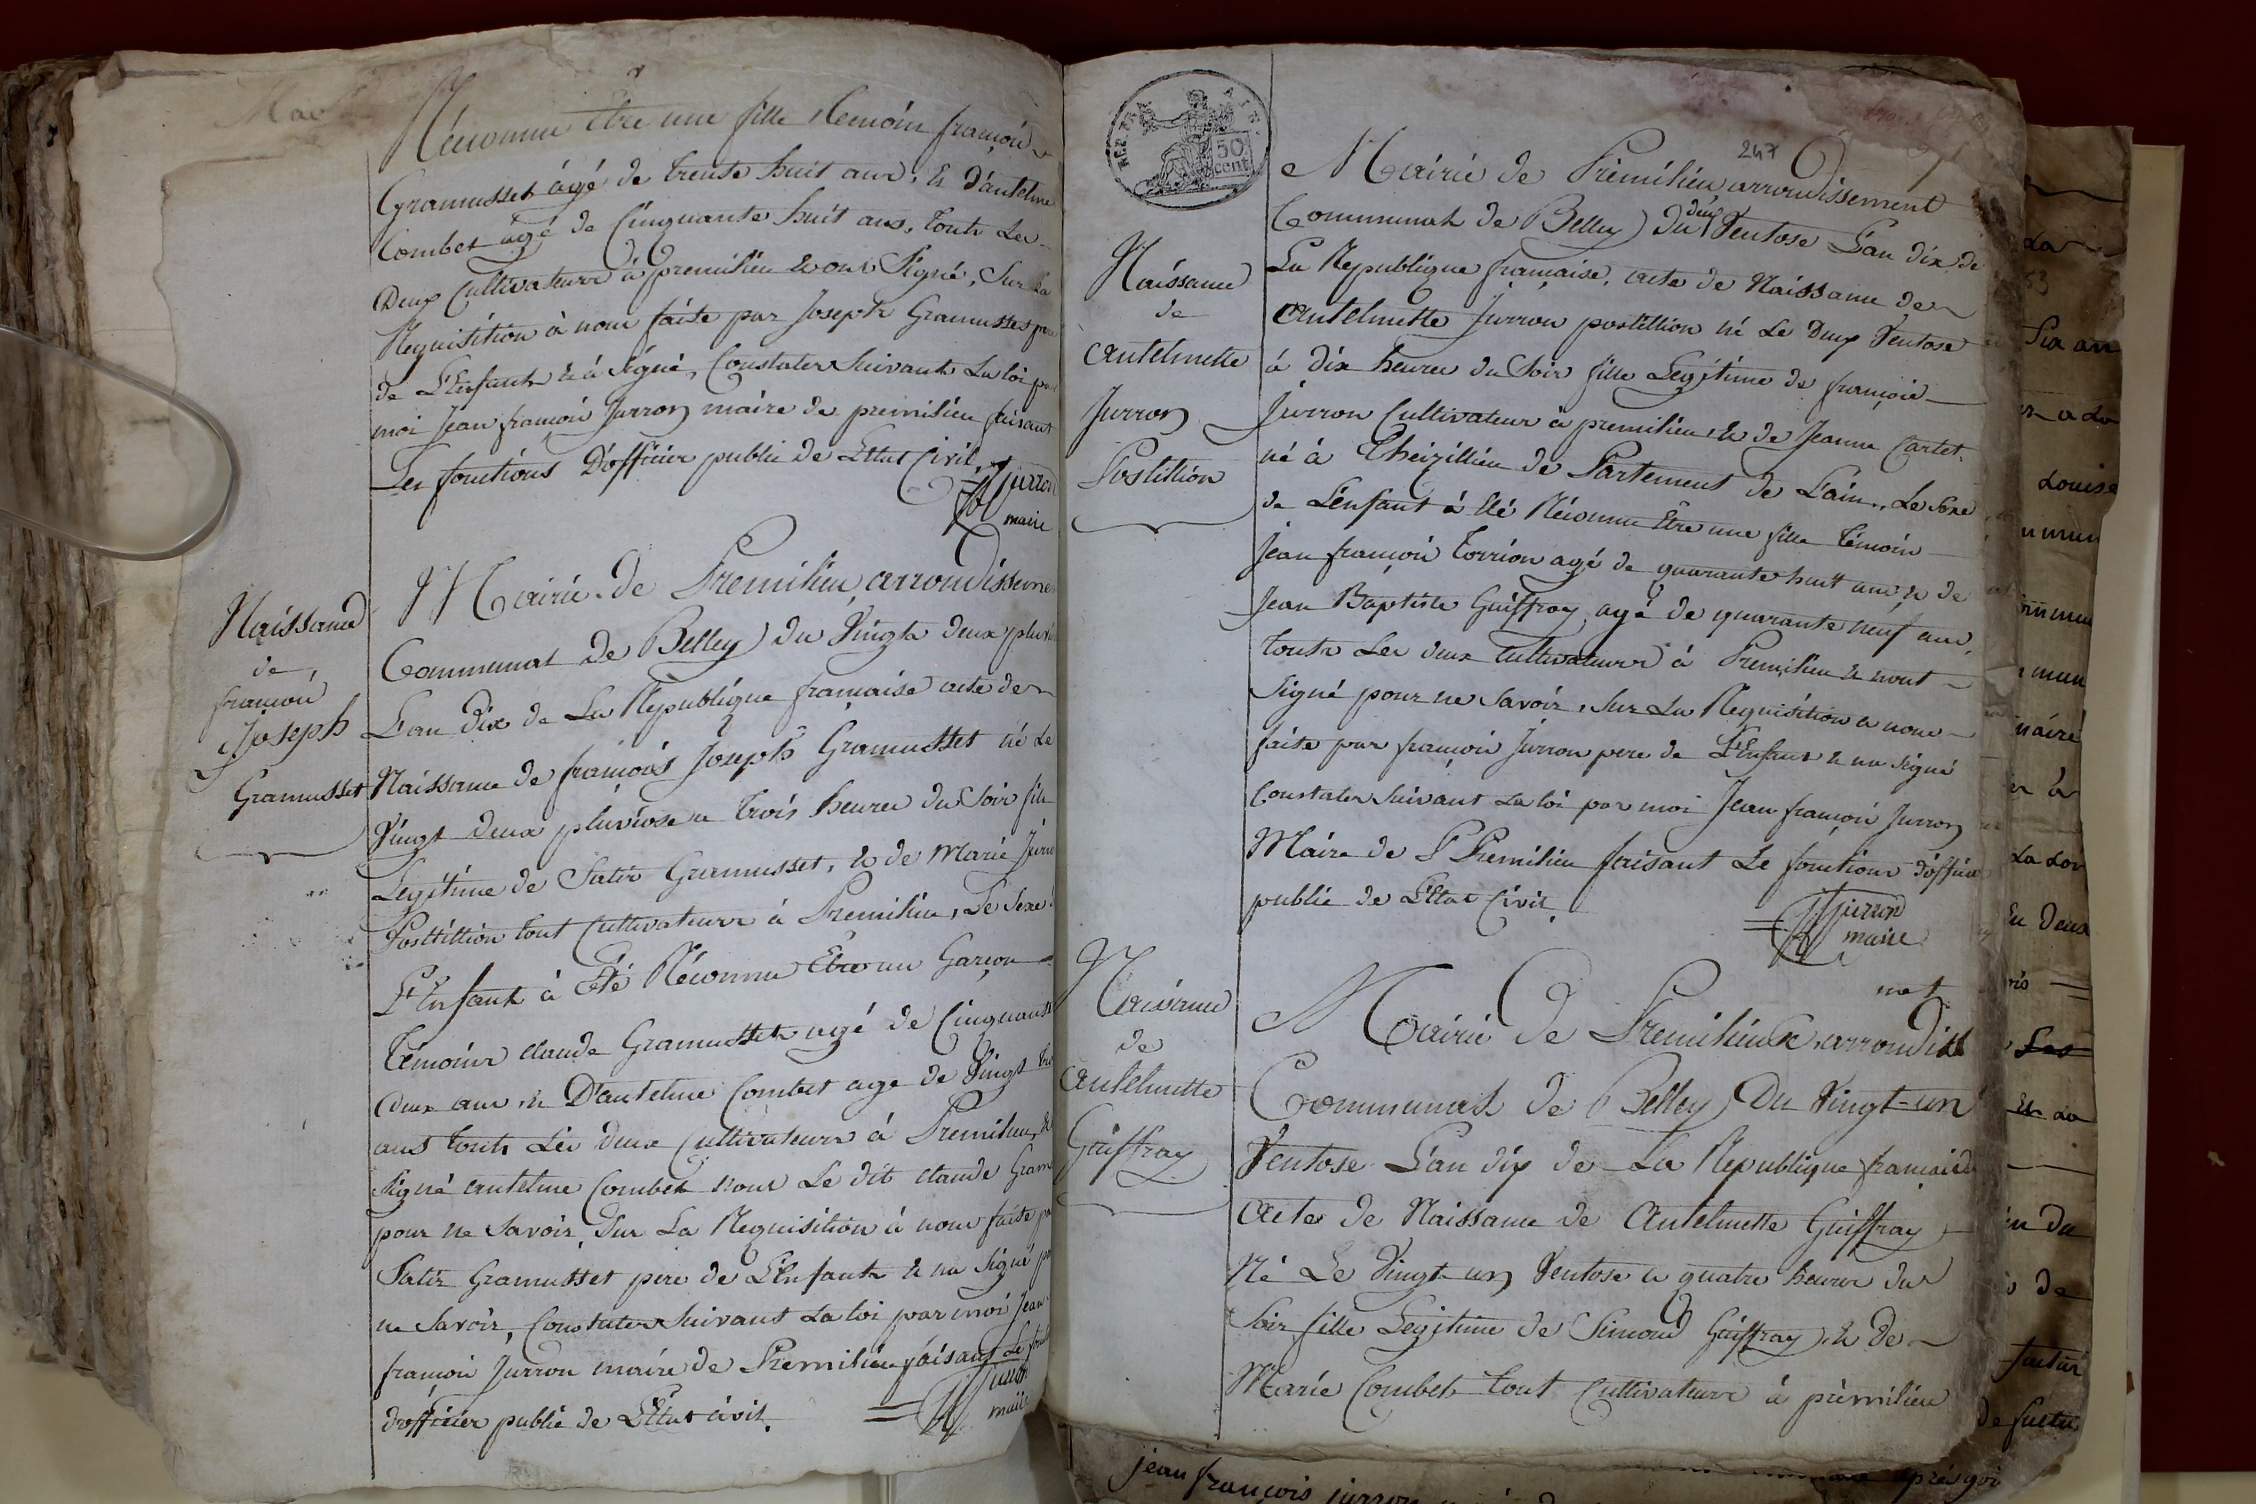 Réconnu Etre une fille, temoin françois
Gramusset âgé de trente huit ans, & D'antelme
Combet agé de Cinquante huit ans, touts Les
Deux Cultivateurs à premilieu & ont Signé, Sur La
Requisition à nous faite par Joseph Gramusset
de L'Enfant & à Signé, Constater Suivant La loi
moi Jean françois Jurron maire de premilieu faisant
Les fonctions D'officier public de L'Etat Civil.
Jurron
maire
Naissance
de
françois
Joseph
Gramusset
Mairie de Premilieu, arrondissemen
Communal de Belley) du Vingt deux
L'an Dix de La Republique francaise acte de
Naissance de françois Joseph Gramusset né Le
Vingt deux pluviose a trois heures du Soir
Legitime de Satir Gramusset, & de Marie
Posttillion tout Cultivateurs à Premilieu, Le Sexe
L'Enfant à Eté Réconnu Etre un Garçon
Témoins claude Gramusset agé de Cinquante
deux ans & D'antelme Combet age de Vingt
ans touts Les deux Cultivateurs à Premilieu,
Signé antelme Combet non Le dit claude
pour ne Savoir, Sur La Requisition à nous faite
Satir Gramusset pere de L'Enfant & na Signé
ne Savoir, Constater Suivant La loi par moi Jean
françois Jurron maire de Premilieu faisant Le
d'officier public de L'Etat civil.
Jurron
maire
REP. FRA.
50
cent
247
Naissance
de
antelmette
Jurron
Postillion
Mairie de Prémilieu arrondissement
Communal de Belley) Du deux Ventose L'an dix de
La Republique française, acte de Naissance de
antelmette Jurron postillion né Le Deux Ventose
à dix heures du Soir fille Legitime de françois
Jurron Cultivateur à premilieu, & de Jeanne Cartet
né à Theizillieu de Partement de L'ain, Le Sexe
de L'enfant à été Réconnu Etre une fille témoin
Jean françois torrion agé de quarante huit ans & de
Jean Baptiste Guiffray, agé de quarante neuf ans,
touts Les deux Cultivateurs à Premilieu & nont
Signé pour ne Savoir, Sur La Requisition a nous
faite par françois Jurron pere de L'Enfant & na Signé
Constater Suivant La loi par moi Jean françois Jurron
Maire de Premilieu faisant Le fonctions d'officier
public de L'Etat Civil.
Jurron
maire
Naissance
de
antelmette
Guiffray
Mairie de Premilieux, arrondiss
Communal de Belley) Du Vingt-un
Ventose L'an dix de La Republique française
acte de Naissance de Antelmette Guiffray
Né Le Vingt-un Ventose a quatre heures du
Soir fille Legitime de Simond Guiffray) & De
Marie Combet tout Cultivateurs à prémilieu
jean françois jurron